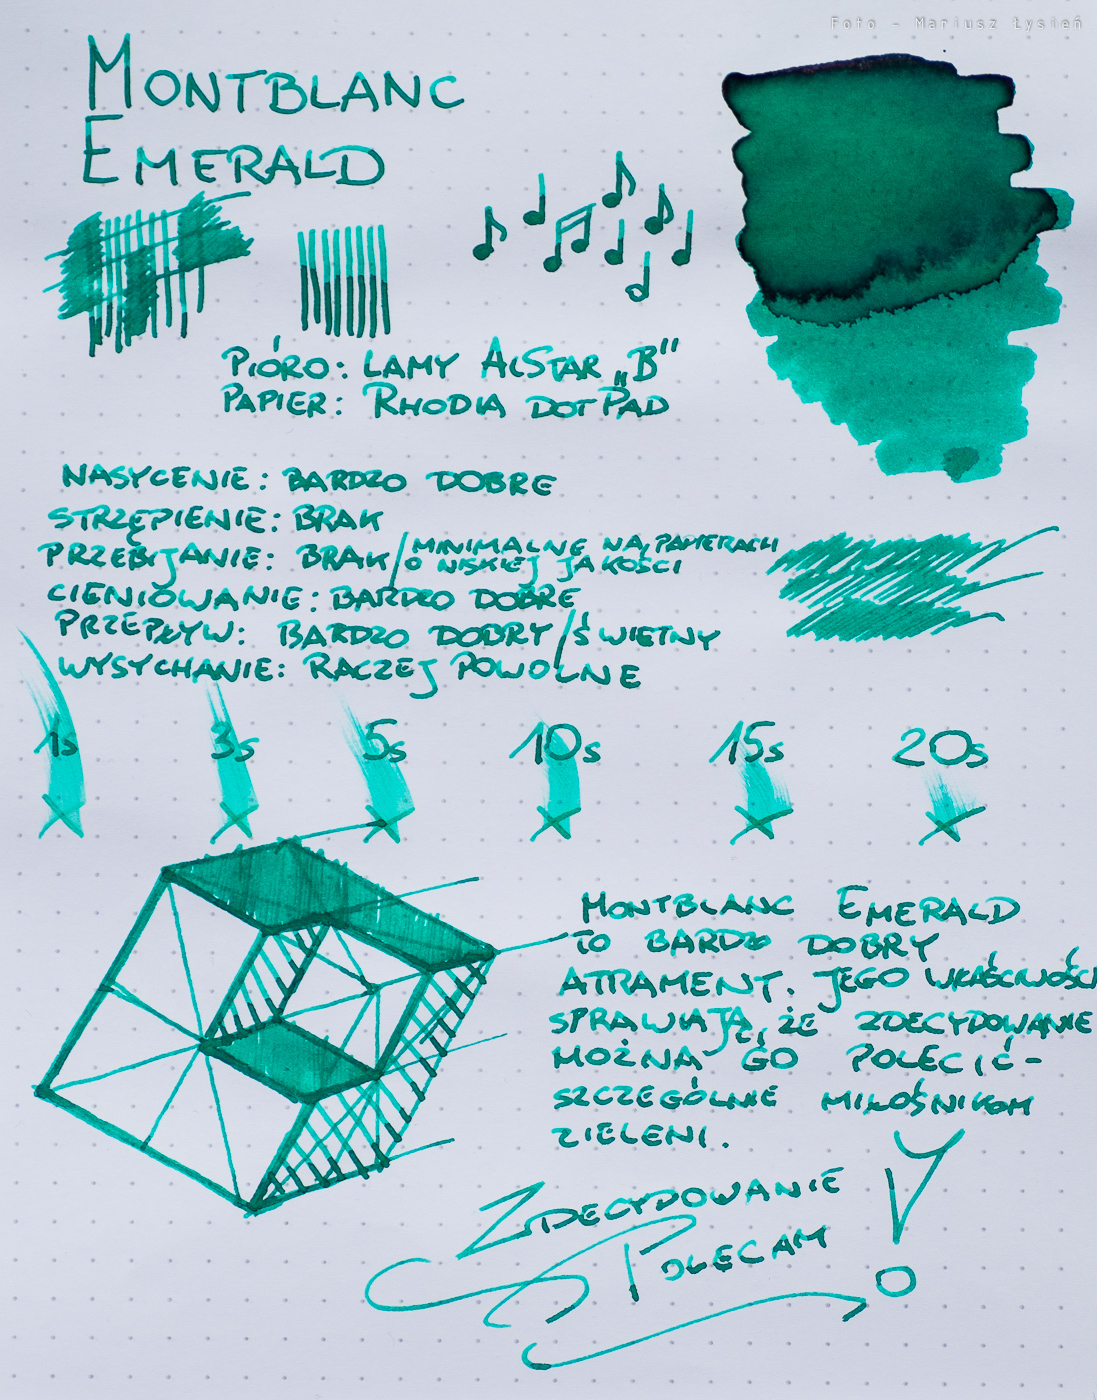 Foto - Mariusz Łysień
MONTBLANC
EMERALD
PIÓRO: LAMY ALSTAR „B"
PAPIER: RHODIA DOTPAD
NASYCENIE: BARDZO DOBRE
STRZĘPIENIE: BRAK
PRZEBIJANIE: BRAK/MINIMALNE NA PAPIERACH
O NISKIEJ JAKOŚCI
CIENIOWANIE: BARDZO DOBRE
PRZEPŁYW: BARDZO DOBRY/ŚWIETNY
WYSYCHANIE: RACZEJ POWOLNE
1s 3s 5s 10s 15s 20s
MONTBLANC EMERALD
TO BARDZO DOBRY
ATRAMENT. JEGO WŁAŚCIWOŚCI
SPRAWIAJĄ, ŻE ZDECYDOWANIE
MOŻNA GO POLECIĆ-
SZCZEGÓLNIE MIŁOŚNIKOM
ZIELENI.
ZDECYDOWANIE
POLECAM!